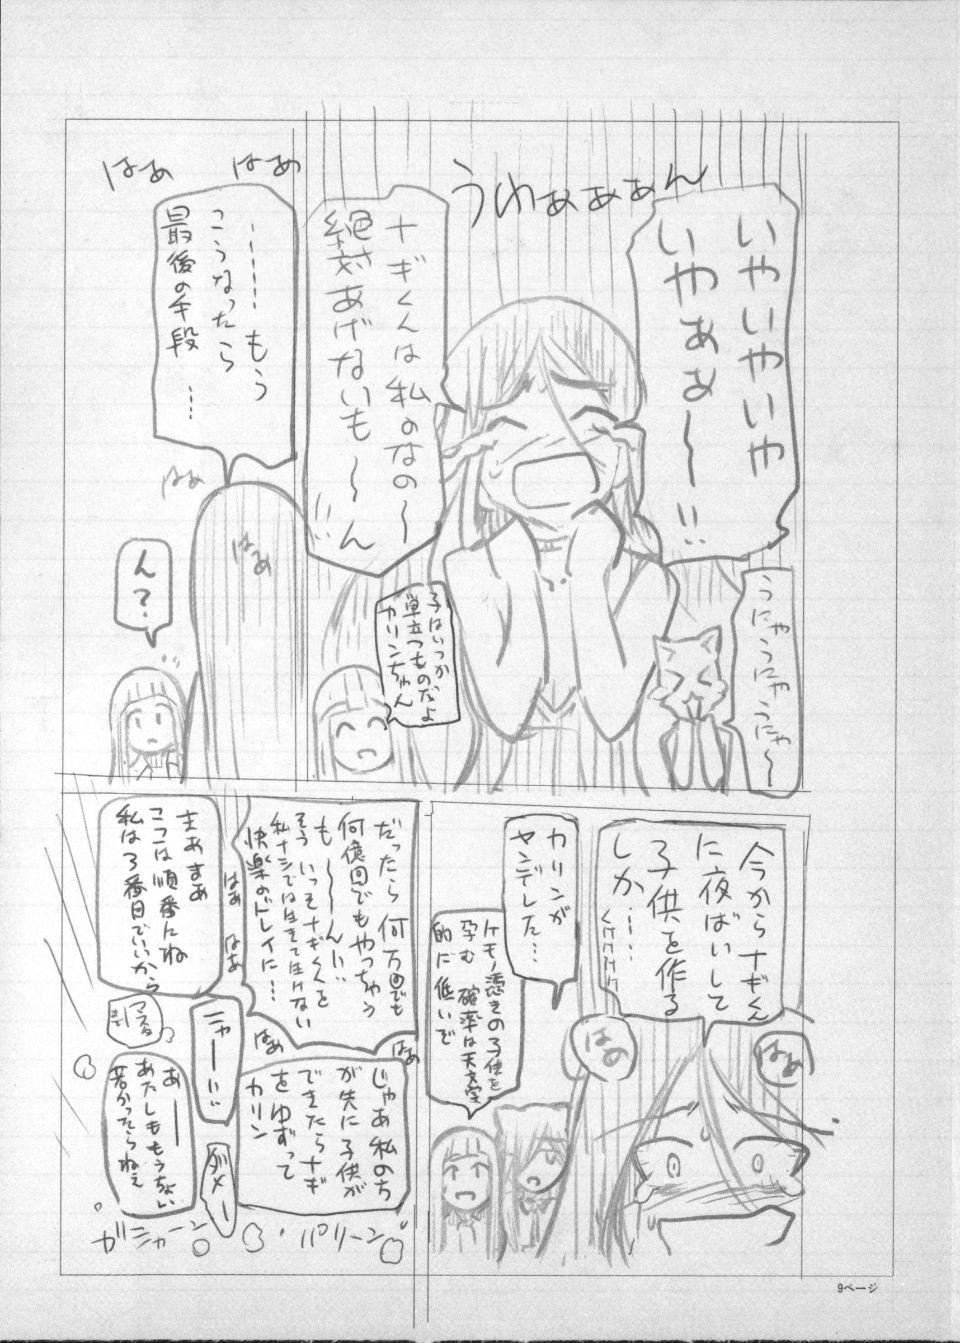 いやいやいや
いやぁぁ〜!!
うわぁぁぁん
ナギくんは私のなの〜
絶対あげないも〜ん
はぁ
はぁ
……もう
こうなったら
最後の手段
…
はぁ
はぁ
うにゃうにゃうにゃ〜
子はいつか
巣立つものだよ
カリンちゃん
ん?
今からナギくん
に夜ばいして
子供を作る
しか……
くけけけけ
カリンが
ヤンデレした…
ケモノ憑きの子供を
孕む確率は天文学
的に低いぞ
はぁ
はぁ
だったら何万回でも
何億回でもやっちゃう
も〜〜ん!!
そういっそナギくんを
私ナシでは生きて生けない
快楽のドレイに…
はぁ
はぁ
はぁ
はぁ
じゃあ私のち
が先に子供が
できたらナギ
をゆずって
カリン
まぁまぁ
ここは順番にね
私は3番目でいいから
ニャー!!
ダメー
あ——
あたしももうちょい
若かったらねぇ
パリーン
ガシャーン
9ページ